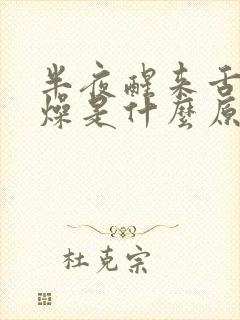 半夜醒来舌
燥是什麼原
杜克宗